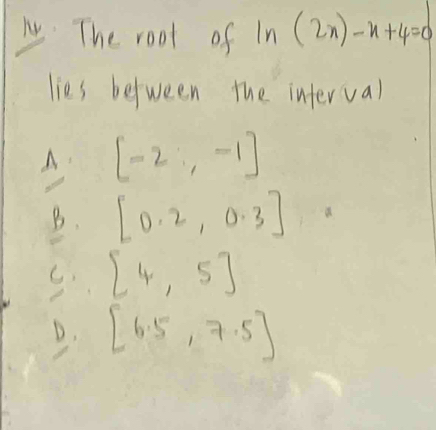 The root of ln (2x)-x+4=0
lies between the interval
A. [-2, -1]
B. [0.2, 0.3]
C. [4, 5]
D. [6.5, 7.5]